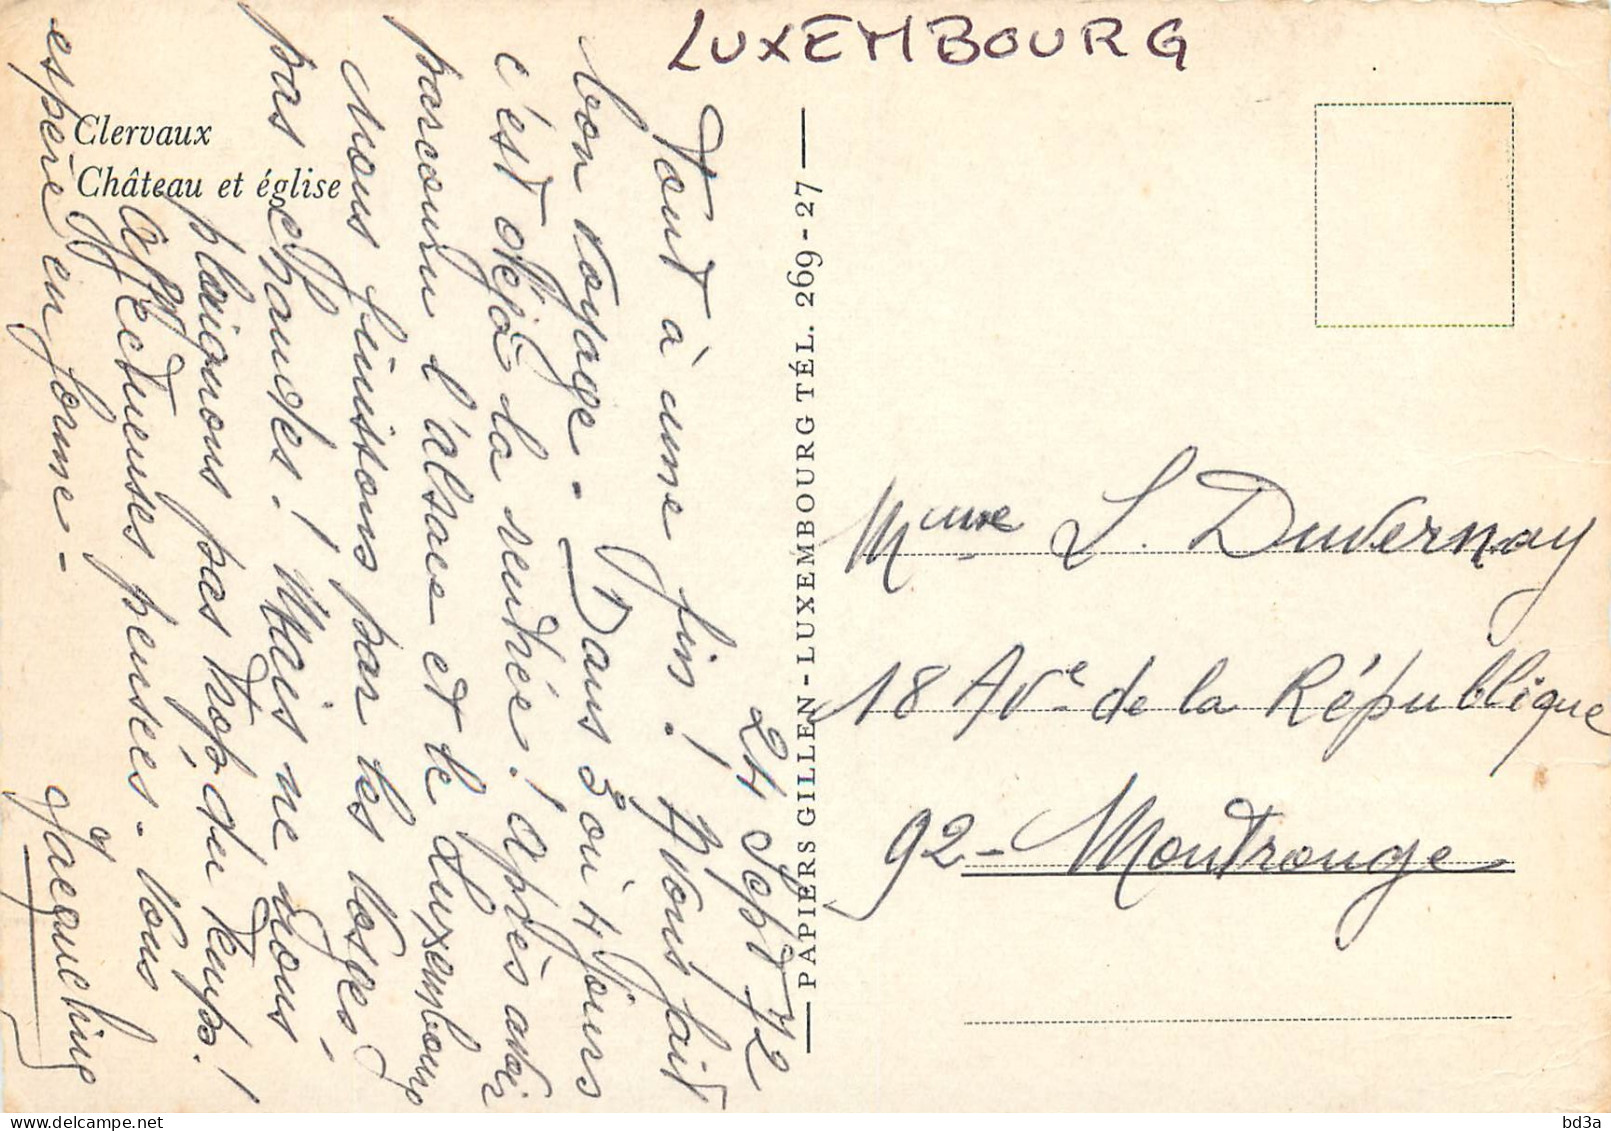 LUXEMBOURG
Clervaux
Château et église
24 Sept 72
Tout à une fin ! Avons fait
bon voyage - Dans 3 ou 4 jours
c'est déjà la rentrée ! après avoir
parcouru l'alsace et le Luxembourg
Nous finissons par les Vosges -
pas chaudes ! Mais ne nous
plaignons pas trop du temps !
Affectueuses pensées - Vous
espère en forme -
Jacqueline
PAPIERS GILLEN - LUXEMBOURG TÉL. 269-27
Mme L. Duvernay
18 Ave de la République
92 - Montrouge
bd3a